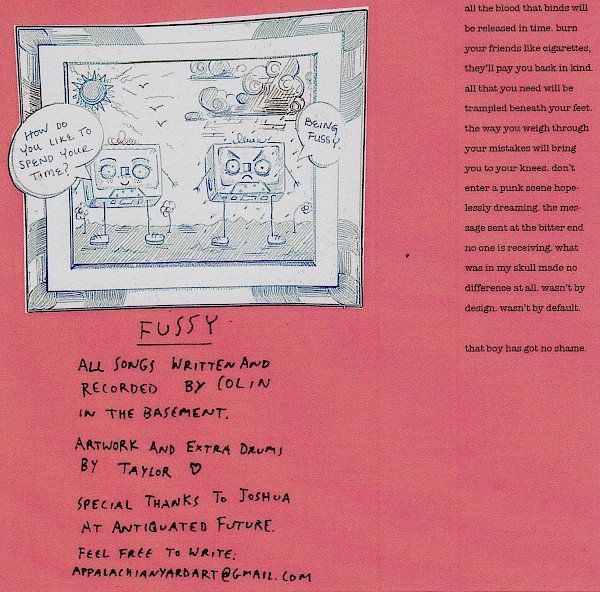 HOW DO
YOU LIKE TO
SPEND YOUR
TIME?
BEING
FUSSY
FUSSY
ALL SONGS WRITTEN AND
RECORDED BY COLIN
IN THE BASEMENT.
ARTWORK AND EXTRA DRUMS
BY TAYLOR ♡
SPECIAL THANKS TO JOSHUA
AT ANTIQUATED FUTURE.
FEEL FREE TO WRITE:
APPALACHIANYARDART@GMAIL.COM
all the blood that binds will
be released in time. burn
your friends like cigarettes,
they'll pay you back in kind.
all that you need will be
trampled beneath your feet.
the way you weigh through
your mistakes will bring
you to your knees. don't
enter a punk scene hope-
lessly dreaming. the mes-
sage sent at the bitter end
no one is receiving. what
was in my skull made no
difference at all. wasn't by
design. wasn't by default.
that boy has got no shame.